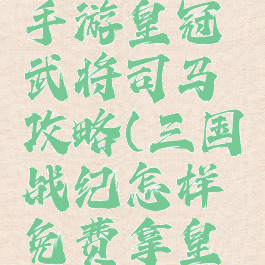 手游皇冠
武将司马
攻略(三国
战纪怎样
免费拿皇